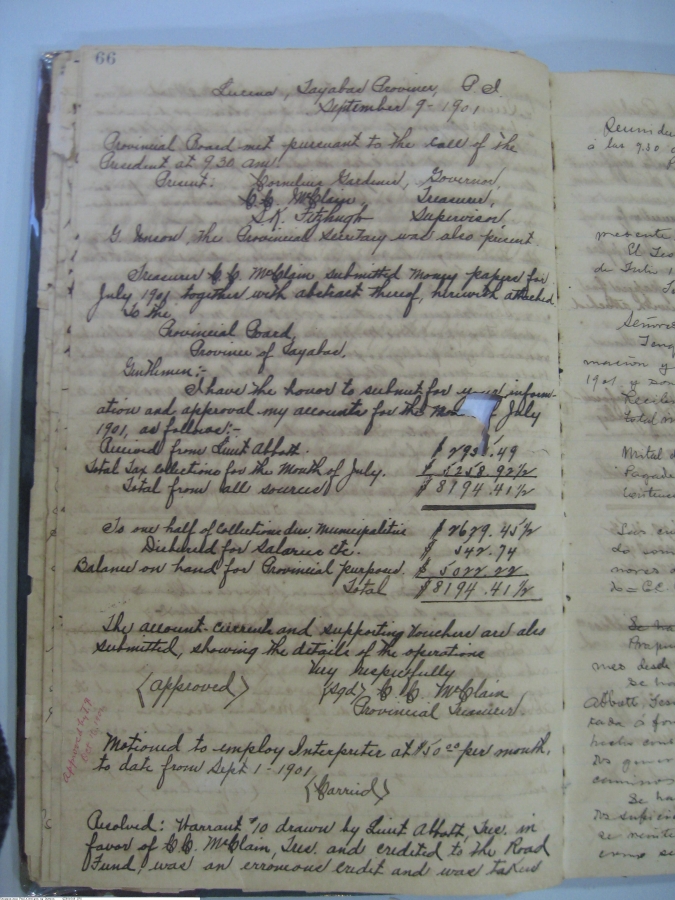 66
Lucena, Tayabas Province, P. I.
September 9- 1901
Provincial Board met pursuant to the call of the
President at 9.30 am!
Present: Cornelius Gardener, Governor,
C.C. McClain, Treasurer,
L.K. Fitzhugh Supervisor,
G. Unson, the Provincial Secretary was also present
Treasurer C.C. McClain submitted money papers for
July 1901, together with abstract thereof, herewith attached
To the
Provincial Board,
Province of Tayabas,
Gentlemen:-
I have the honor to submit for your inform-
ation and approval my accounts for the July
1901, as follows:-
Received from Lieut Abbott. $ 2935.49
Total Tax collections for the Month of July. $ 5258.92 1/2
Total from all sources $ 8194.41 1/2
To one half of collections due Municipalities $ 2629.45 1/2
Disbursed for Salaries etc. $ 542.74
Balance on hand for Provincial purposes. $ 5022.22
Total $8194.41 1/2
The account-currents and supporting vouchers are also
submitted, showing the details of the operations
Very respectfully
(Approved) (Sgd) C. C. McClain
Provincial Treasurer.
Motioned to employ Interpreter at $50 00 per month,
to date from Sept 1- 1901
(Carried)
Resolved: Warrant #10 drawn by Lieut Abbott, Tres. in
favor of C.C. McClain, Tres. and credited to the Road
Fund, was an erronious credit and was taken
á las 9.30
presente
de Julio 1
Señores
mación y
1901 y son
total
nores
mes desde
Se ha
Abbott, Tes
caminos
Se ha